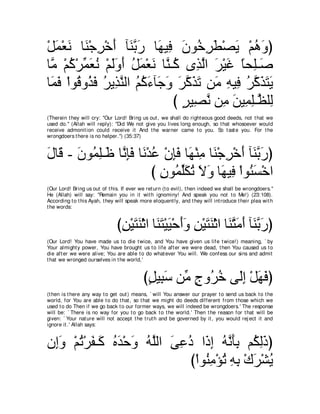 وَهُمْ يَصْطَرِخُونَ فِيهَا رَبَّنَآ أَخْرِجْنَا نَعْمَلْ
صَـلِحاً غَيْرَ الَّذِى كُـنَّا نَعْمَلُ أَوَلَمْ نُعَمِّرْكُمْ مَّا
يَتَذَكَّرُ فِيهِ مَن تَذَكَّرَ وَجَآءَكُمُ النَّذِيرُ فَذُوقُواْ فَمَا
لِلظَّـلِمِينَ مِن نَّصِيرٍ )
(Therein they will cry: "Our Lord! Bring us out, we shall do righteous good deeds, not that we
used do.'' (Allah will reply): "Did We not give you lives long enough, so that whosoever would
receive admonition could receive it And the warner came to you. So taste you. For the
wrongdoers there is no helper.'') (35:37)
(رَبَّنَآ أَخْرِجْنَا مِنْهَا فَإِنْ عُدْنَا فَإِنَّا ظَـلِمُونَ - قَالَ
اخْسَئُواْ فِيهَا وَلاَ تُكَلِّمُونِ )
(Our Lord! Bring us out of this. If ever we return (to evil), then indeed we shall be wrongdoers.''
He (Allah) will say: "Remain you in it with ignominy! And speak you not to Me!) (23:108).
According to this Ayah, they will speak more eloquently, and they will introduce their plea with
the words:
(رَبَّنَآ أَمَتَّنَا اثْنَتَيْنِ وَأَحْيَيْتَنَا اثْنَتَيْنِ)
(Our Lord! You have made us to die twice, and You have given us life twice!) meaning, `by
Your almighty power, You have brought us to life after we were dead, then You caused us to
die after we were alive; You are able to do whatever You will. We confess our sins and admit
that we wronged ourselves in the world,'
(فَهَلْ إِلَى خُرُوجٍ مِّن سَبِيلٍ)
(then is there any way to get out) means, `will You answer our prayer to send us back to the
world, for You are able to do that, so that we might do deeds different from those which we
used to do Then if we go back to our former ways, we will indeed be wrongdoers.' The response
will be: `There is no way for you to go back to the world.' Then the reason for that will be
given: `Your nature will not accept the truth and be governed by it, you would reject it and
ignore it.' Allah says:
(ذَلِكُم بِأَنَّهُ إِذَا دُعِىَ اللَّهُ وَحْدَهُ كَـفَرْتُمْ وَإِن
يُشْرَكْ بِهِ تُؤْمِنُواْ)